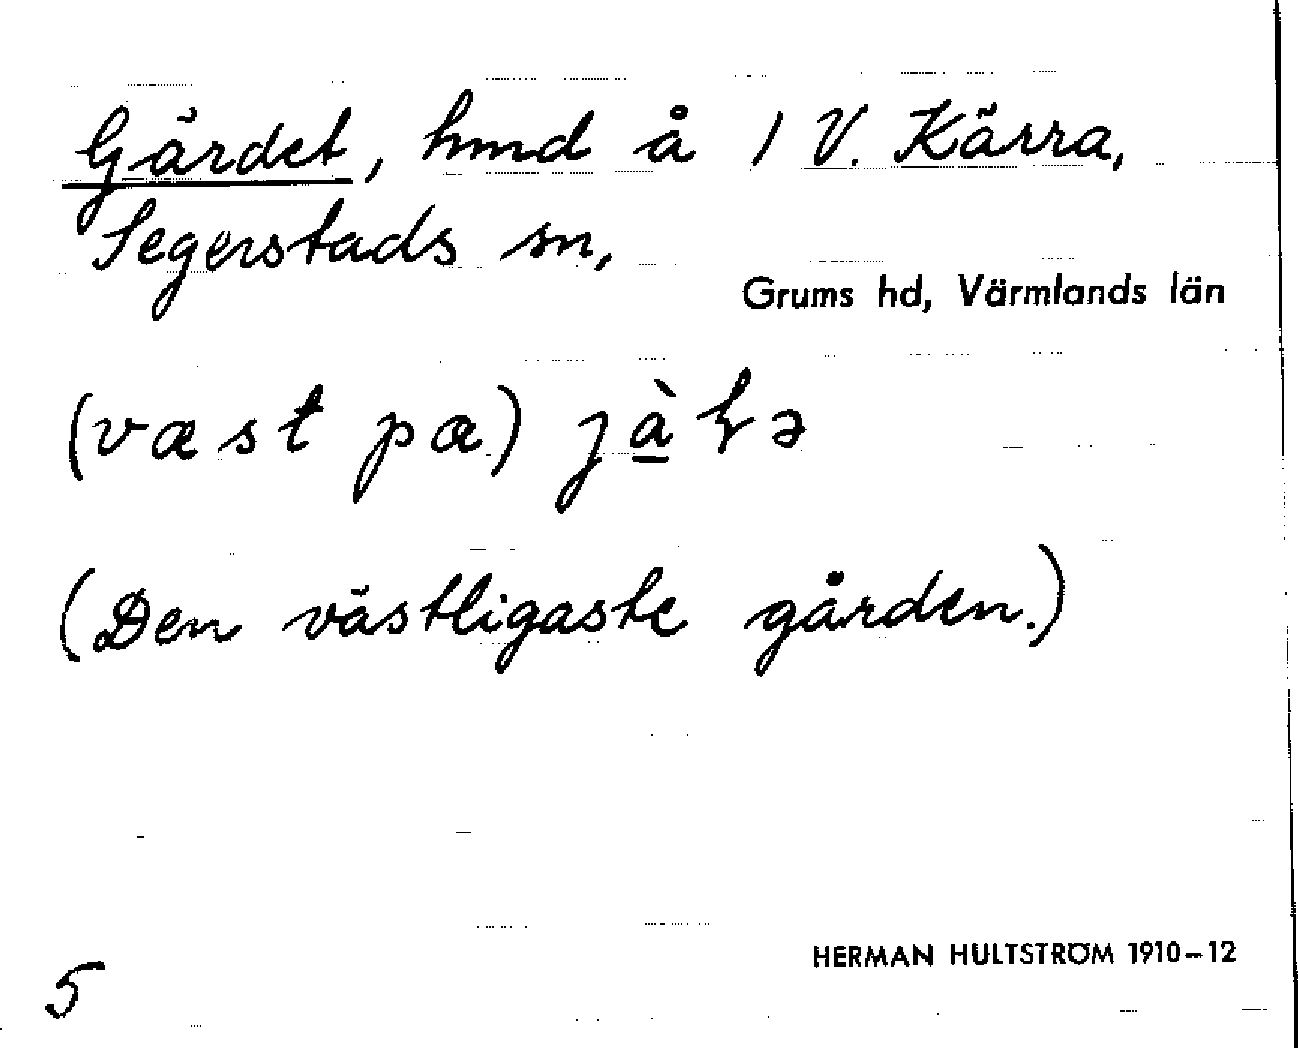 Gärdet, hmd å 1 V. Kärra,
Segerstads sn,
Grums hd, Värmlands län
(væst pα)
(Den västligaste gården.)
HERMAN HULTSTRÖM 1910–12
5